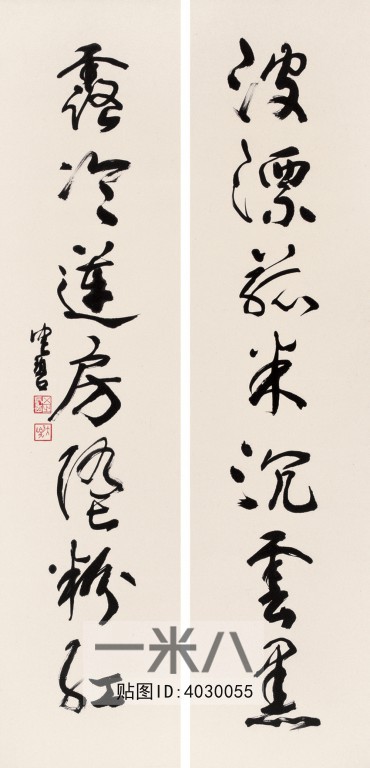 波漂菰米沉雲黑
露冷蓮房墜粉紅
一米八
贴图ID:4030055